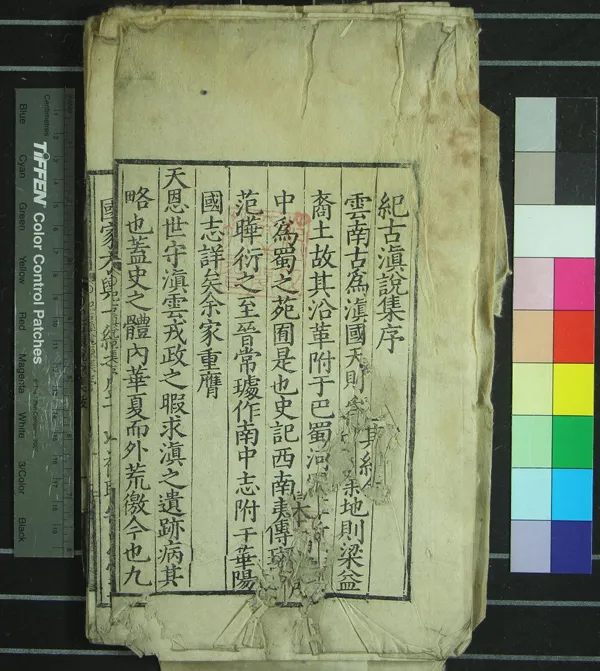 紀古滇說集序
雲南古爲滇國天則 地則梁益
裔土故其沿革附于巴蜀河
中爲蜀之苑囿是也史記西南夷傳
范曄衍之至晉常璩作南中志附于華陽
國志詳矣余家重膺
天恩世守滇雲戎政之暇求滇之遺跡病其
略也蓋史之體內華夏而外荒徼今也九
國家
TIFFEN Color Control Patches
Centimetres
Blue
Cyan
Green
Yellow
Red
Magenta
White
3/Color
Black